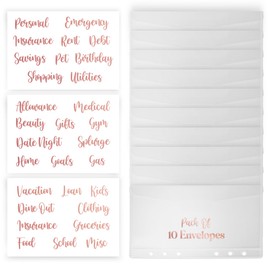 Personal Emergency
Insurance Rent Debt
Savings Pet Birthday
Shopping Utilities
Allowance Medical
Beauty Gifts Gym
Date Night Splurge
Home Goals Gas
Vacation Loan Kids
Dine Out Clothing
Insurance Groceries
Food School Misc
Pack Of
10 Envelopes